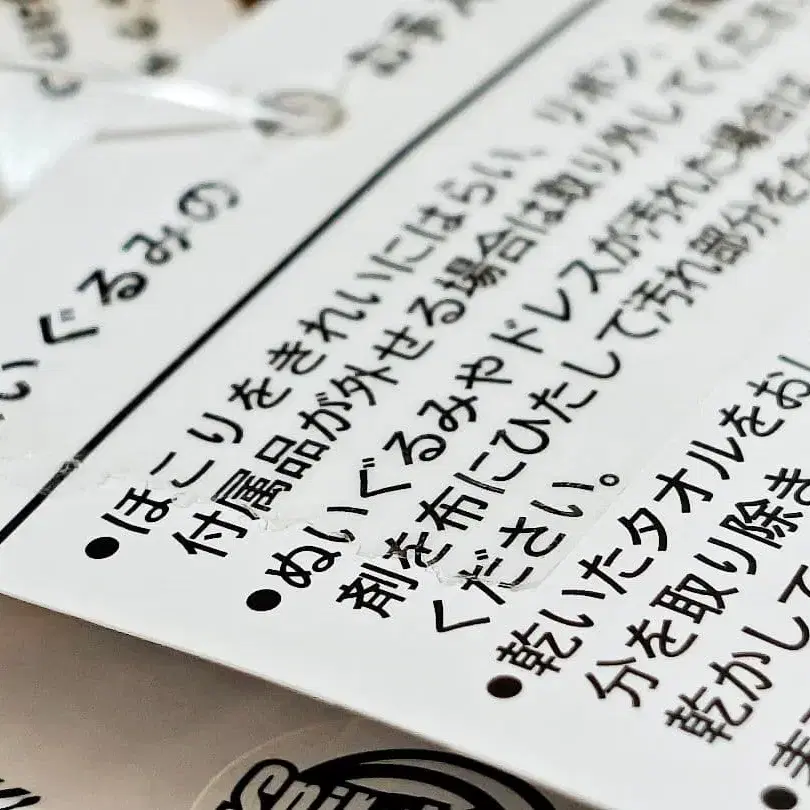 ぬいぐるみの
お手入
ほこりをきれいにはらい、リボン、
付属品が外せる場合は取り外してくださ
ぬいぐるみやドレスが汚れた場合は
剤を布にひたして汚れ部分をた
ください。
乾いたタオルをおし
分を取り除き
乾かして